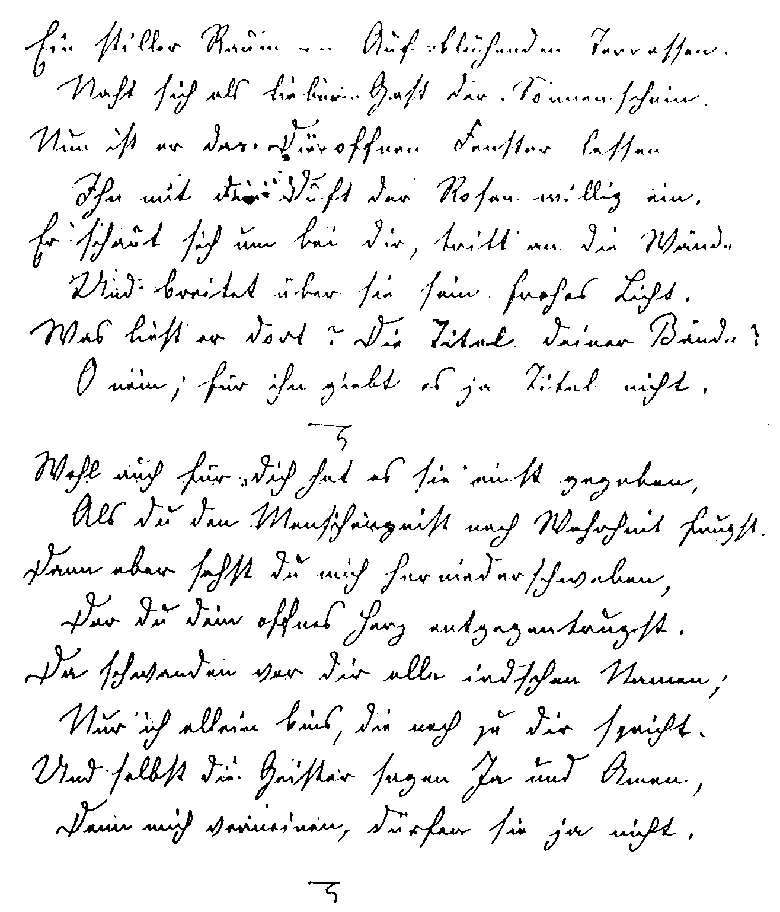 Ein stiller Raum. — Auf blühenden Terrassen.
Naht sich als lieber Gast der Sonnenschein.
Nun ist er da. Die offnen Fenster lassen
Ihn mit dem Duft der Rosen willig ein.
Er schaut sich um bei dir, tritt an die Wände
Und breitet über sie sein frohes Licht.
Was liest er dort? Die Titel deiner Bände?
O nein; für ihn giebt es ja Titel nicht.
Wohl auch für dich hat es sie einst gegeben,
Als du den Menschengeist nach Wahrheit frugst.
Dann aber sahst du mich herniederschweben,
Der du dein offnes Herz entgegentrugst.
Da schwanden vor dir alle ird'schen Namen;
Nur ich allein bins, die noch zu dir spricht.
Und selbst die Geister sagen Ja und Amen,
Denn mich verneinen, dürfen sie ja nicht.